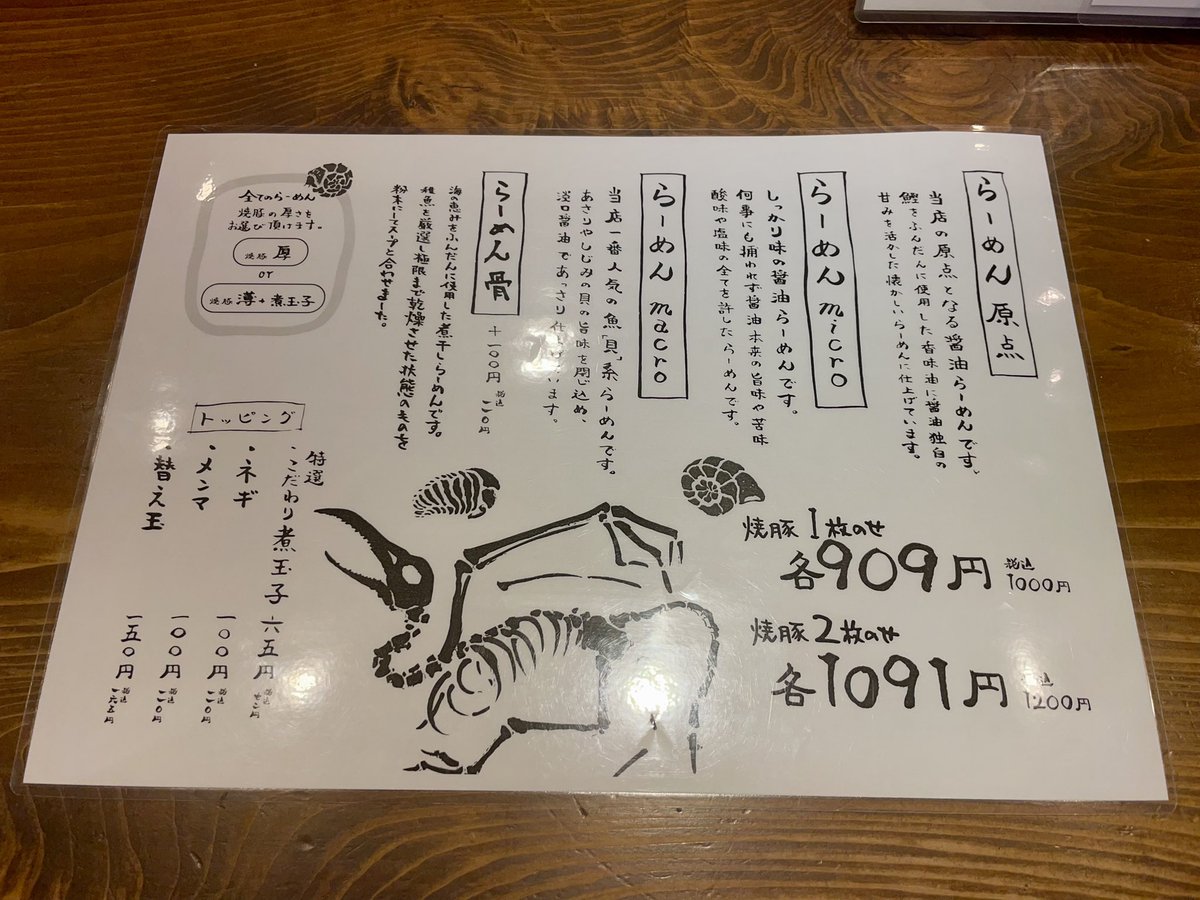 らーめん 原点
当店の原点となる醤油らーめんです。
鰹をふんだんに使用した香味油に醤油独自の
甘みを活かした懐かしいらーめんに仕上げています。
らーめん micro
しっかり味の醤油らーめんです。
何事にも捕われず醤油本来の旨味や苦味
酸味や塩味の全てを許したらーめんです。
らーめん macro
当店一番人気の魚「貝」系らーめんです。
あさりやしじみの貝の旨味を閉じ込め、
淡口醤油であっさり仕上げています。
らーめん 骨
+一〇〇円 税込一一〇円
海の恵みをふんだんに使用した煮干しらーめんです。
稚魚を厳選し極限まで乾燥させた状態のものを
粉末にしてスープと合わせました。
焼豚1枚のせ
各909円 税込1000円
焼豚2枚のせ
各1091円 税込1200円
全てのらーめん
焼豚の厚さを
お選び頂けます。
焼豚 厚
or
焼豚 薄+煮玉子
トッピング
特選
・こだわり煮玉子 六五円 税込七二円
・ネギ 一〇〇円 税込一一〇円
・メンマ 一〇〇円 税込一一〇円
・替え玉 一五〇円 税込一六五円